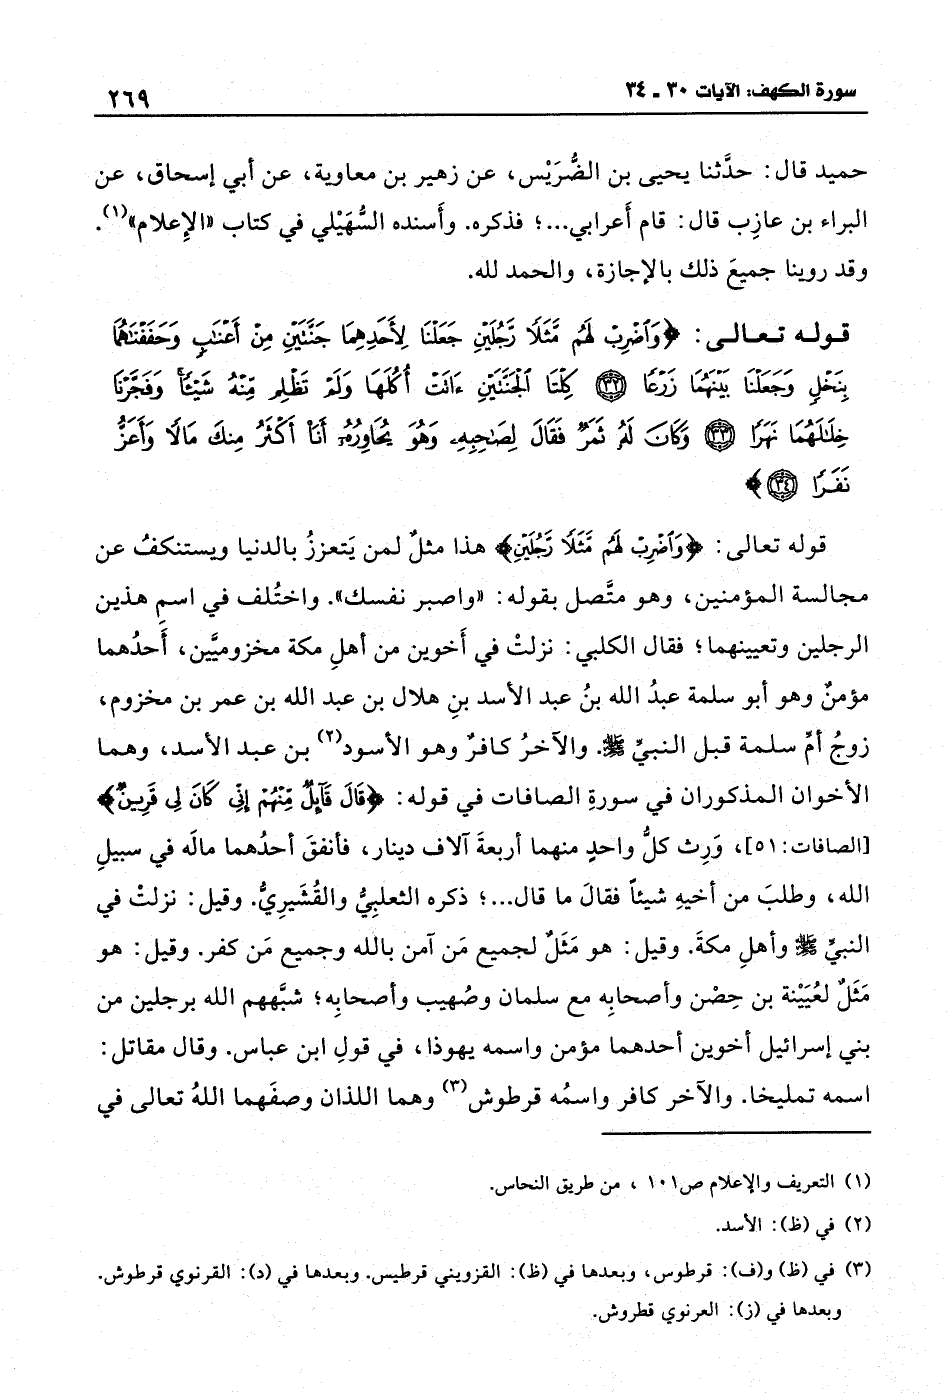 سورة الكهف: الآيات ٣٠ - ٣٤
٢٦٩
حميد قال: حدَّثنا يحيى بن الضُّرَيْس، عن زهير بن معاوية، عن أبي إسحاق، عن
البراء بن عازِب قال: قام أَعرابي...؛ فذكره. وأَسنده السُّهَيْلي في كتاب «الإعلام»(١).
وقد روينا جميعَ ذلك بالإجازة، والحمد لله.
قوله تعالى: ﴿وَٱضْرِبْ لَهُم مَّثَلًا رَّجُلَيْنِ جَعَلْنَا لِأَحَدِهِمَا جَنَّتَيْنِ مِنْ أَعْنَٰبٍ وَحَفَفْنَٰهُمَا
بِنَخْلٍ وَجَعَلْنَا بَيْنَهُمَا زَرْعًا ٣٢ كِلْتَا ٱلْجَنَّتَيْنِ ءَاتَتْ أُكُلَهَا وَلَمْ تَظْلِم مِّنْهُ شَيْـًٔا وَفَجَّرْنَا
خِلَٰلَهُمَا نَهَرًا ٣٣ وَكَانَ لَهُ ثَمَرٌ فَقَالَ لِصَٰحِبِهِۦ وَهُوَ يُحَاوِرُهُۥٓ أَنَا۠ أَكْثَرُ مِنكَ مَالًا وَأَعَزُّ
نَفَرًا ٣٤﴾
قوله تعالى: ﴿وَٱضْرِبْ لَهُم مَّثَلًا رَّجُلَيْنِ﴾ هذا مثلٌ لمن يَتعززُ بالدنيا ويستنكفُ عن
مجالسة المؤمنين، وهو متَّصل بقوله: «واصبر نفسك». واختُلف في اسمِ هذين
الرجلين وتعيينهما؛ فقال الكلبي: نزلتْ في أَخوين من أهلِ مكة مخزوميَّين، أَحدُهما
مؤمنٌ وهو أبو سلمة عبدُ الله بنُ عبد الأسد بنِ هلال بن عبد الله بن عمر بن مخزوم،
زوجُ أمِّ سلمة قبل النبيِّ ﷺ. والآخرُ كافرٌ وهو الأسود(٢) بن عبد الأسد، وهما
الأخوان المذكوران في سورةِ الصافات في قوله: ﴿قَالَ قَآئِلٌ مِّنْهُمْ إِنِّى كَانَ لِى قَرِينٌ﴾
[الصافات: ٥١]، وَرِث كلُّ واحدٍ منهما أربعةَ آلاف دينار، فأنفقَ أحدُهما مالَه في سبيلِ
الله، وطلبَ من أخيهِ شيئاً فقالَ ما قال...؛ ذكره الثعلبيُّ والقُشَيريُّ. وقيل: نزلتْ في
النبيِّ ﷺ وأهلِ مكةَ. وقيل: هو مَثَلٌ لجميع مَن آمن بالله وجميع مَن كفر. وقيل: هو
مَثَلٌ لعُيَيْنة بن حِصْن وأصحابِه مع سلمان وصُهيب وأصحابِه؛ شبَّههم الله برجلين من
بني إسرائيل أخوين أحدهما مؤمن واسمه يهوذا، في قولِ ابن عباس. وقال مقاتل:
اسمه تمليخا. والآخر كافر واسمُه قرطوش(٣) وهما اللذان وصفَهما اللهُ تعالى في
(١) التعريف والإعلام ص١٠١ ، من طريق النحاس.
(٢) في (ظ): الأسد.
(٣) في (ظ) و(ف): قرطوس، وبعدها في (ظ): القزويني قرطيس. وبعدها في (د): القرنوي قرطوش.
وبعدها في (ز): العرنوي قطروش.